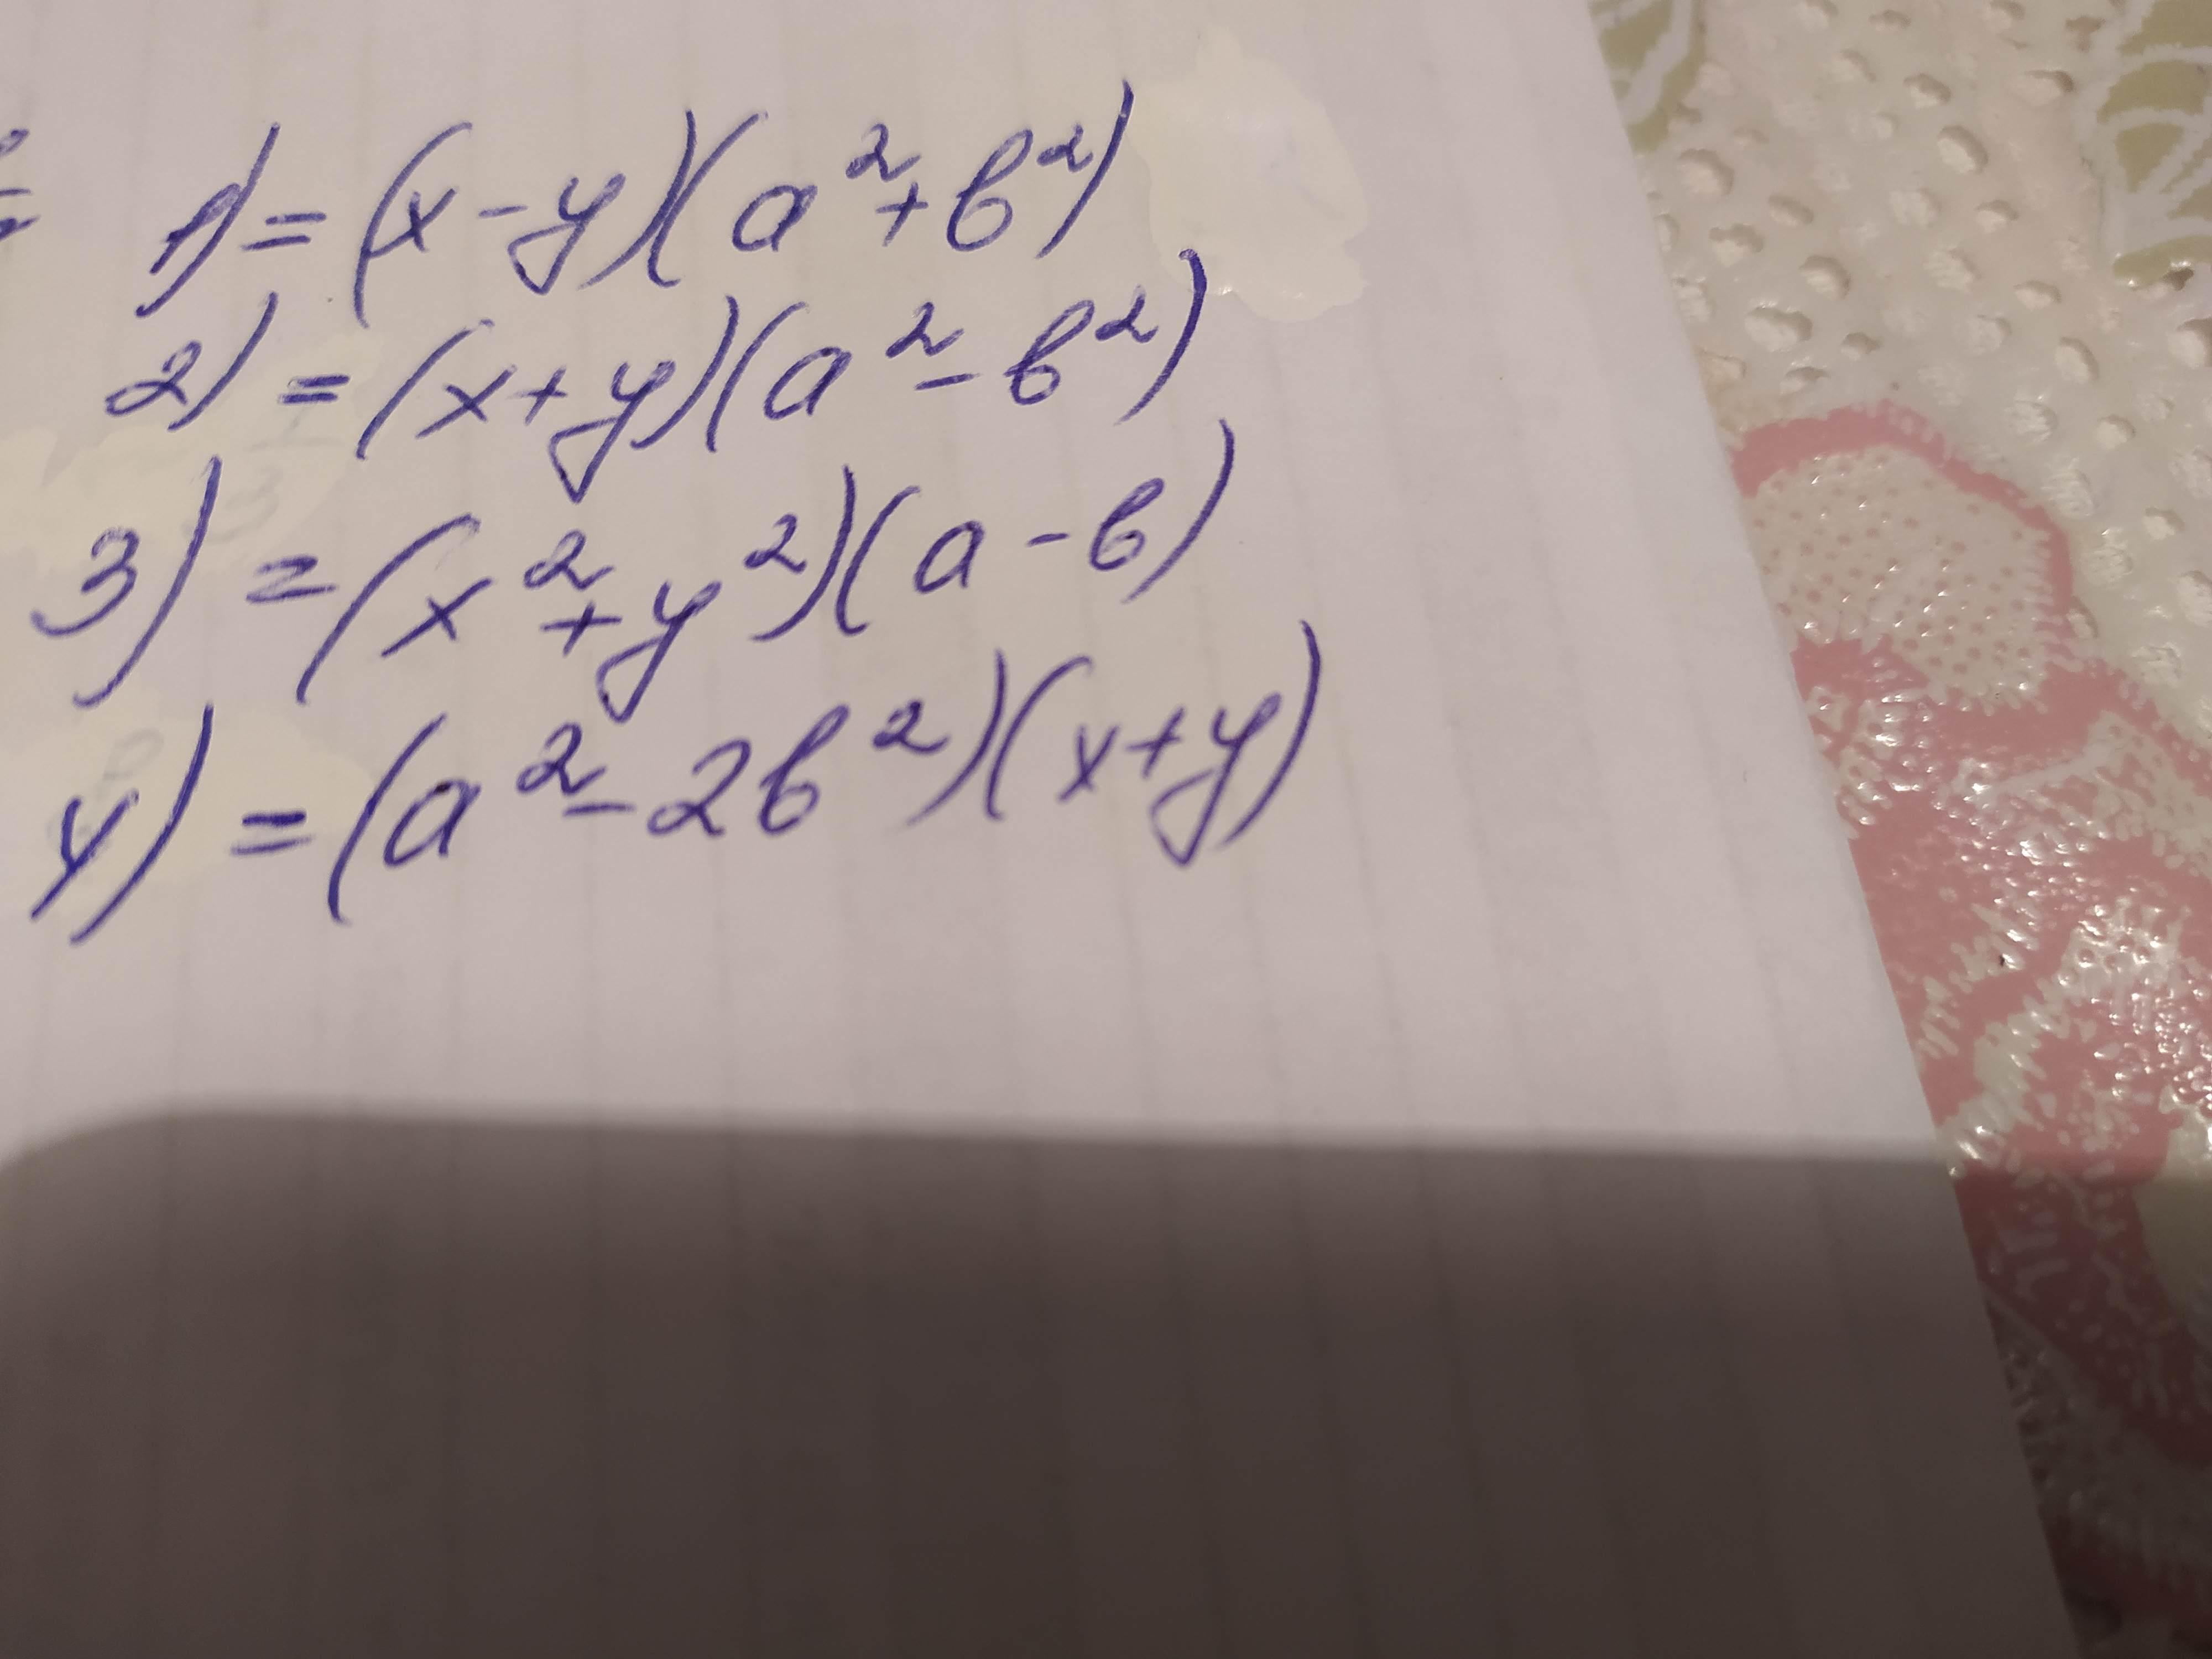 1) = (x - y)(a² + b²)
2) = (x + y)(a² - b²)
3) = (x² + y²)(a - b)
4) = (a² - 2b²)(x + y)